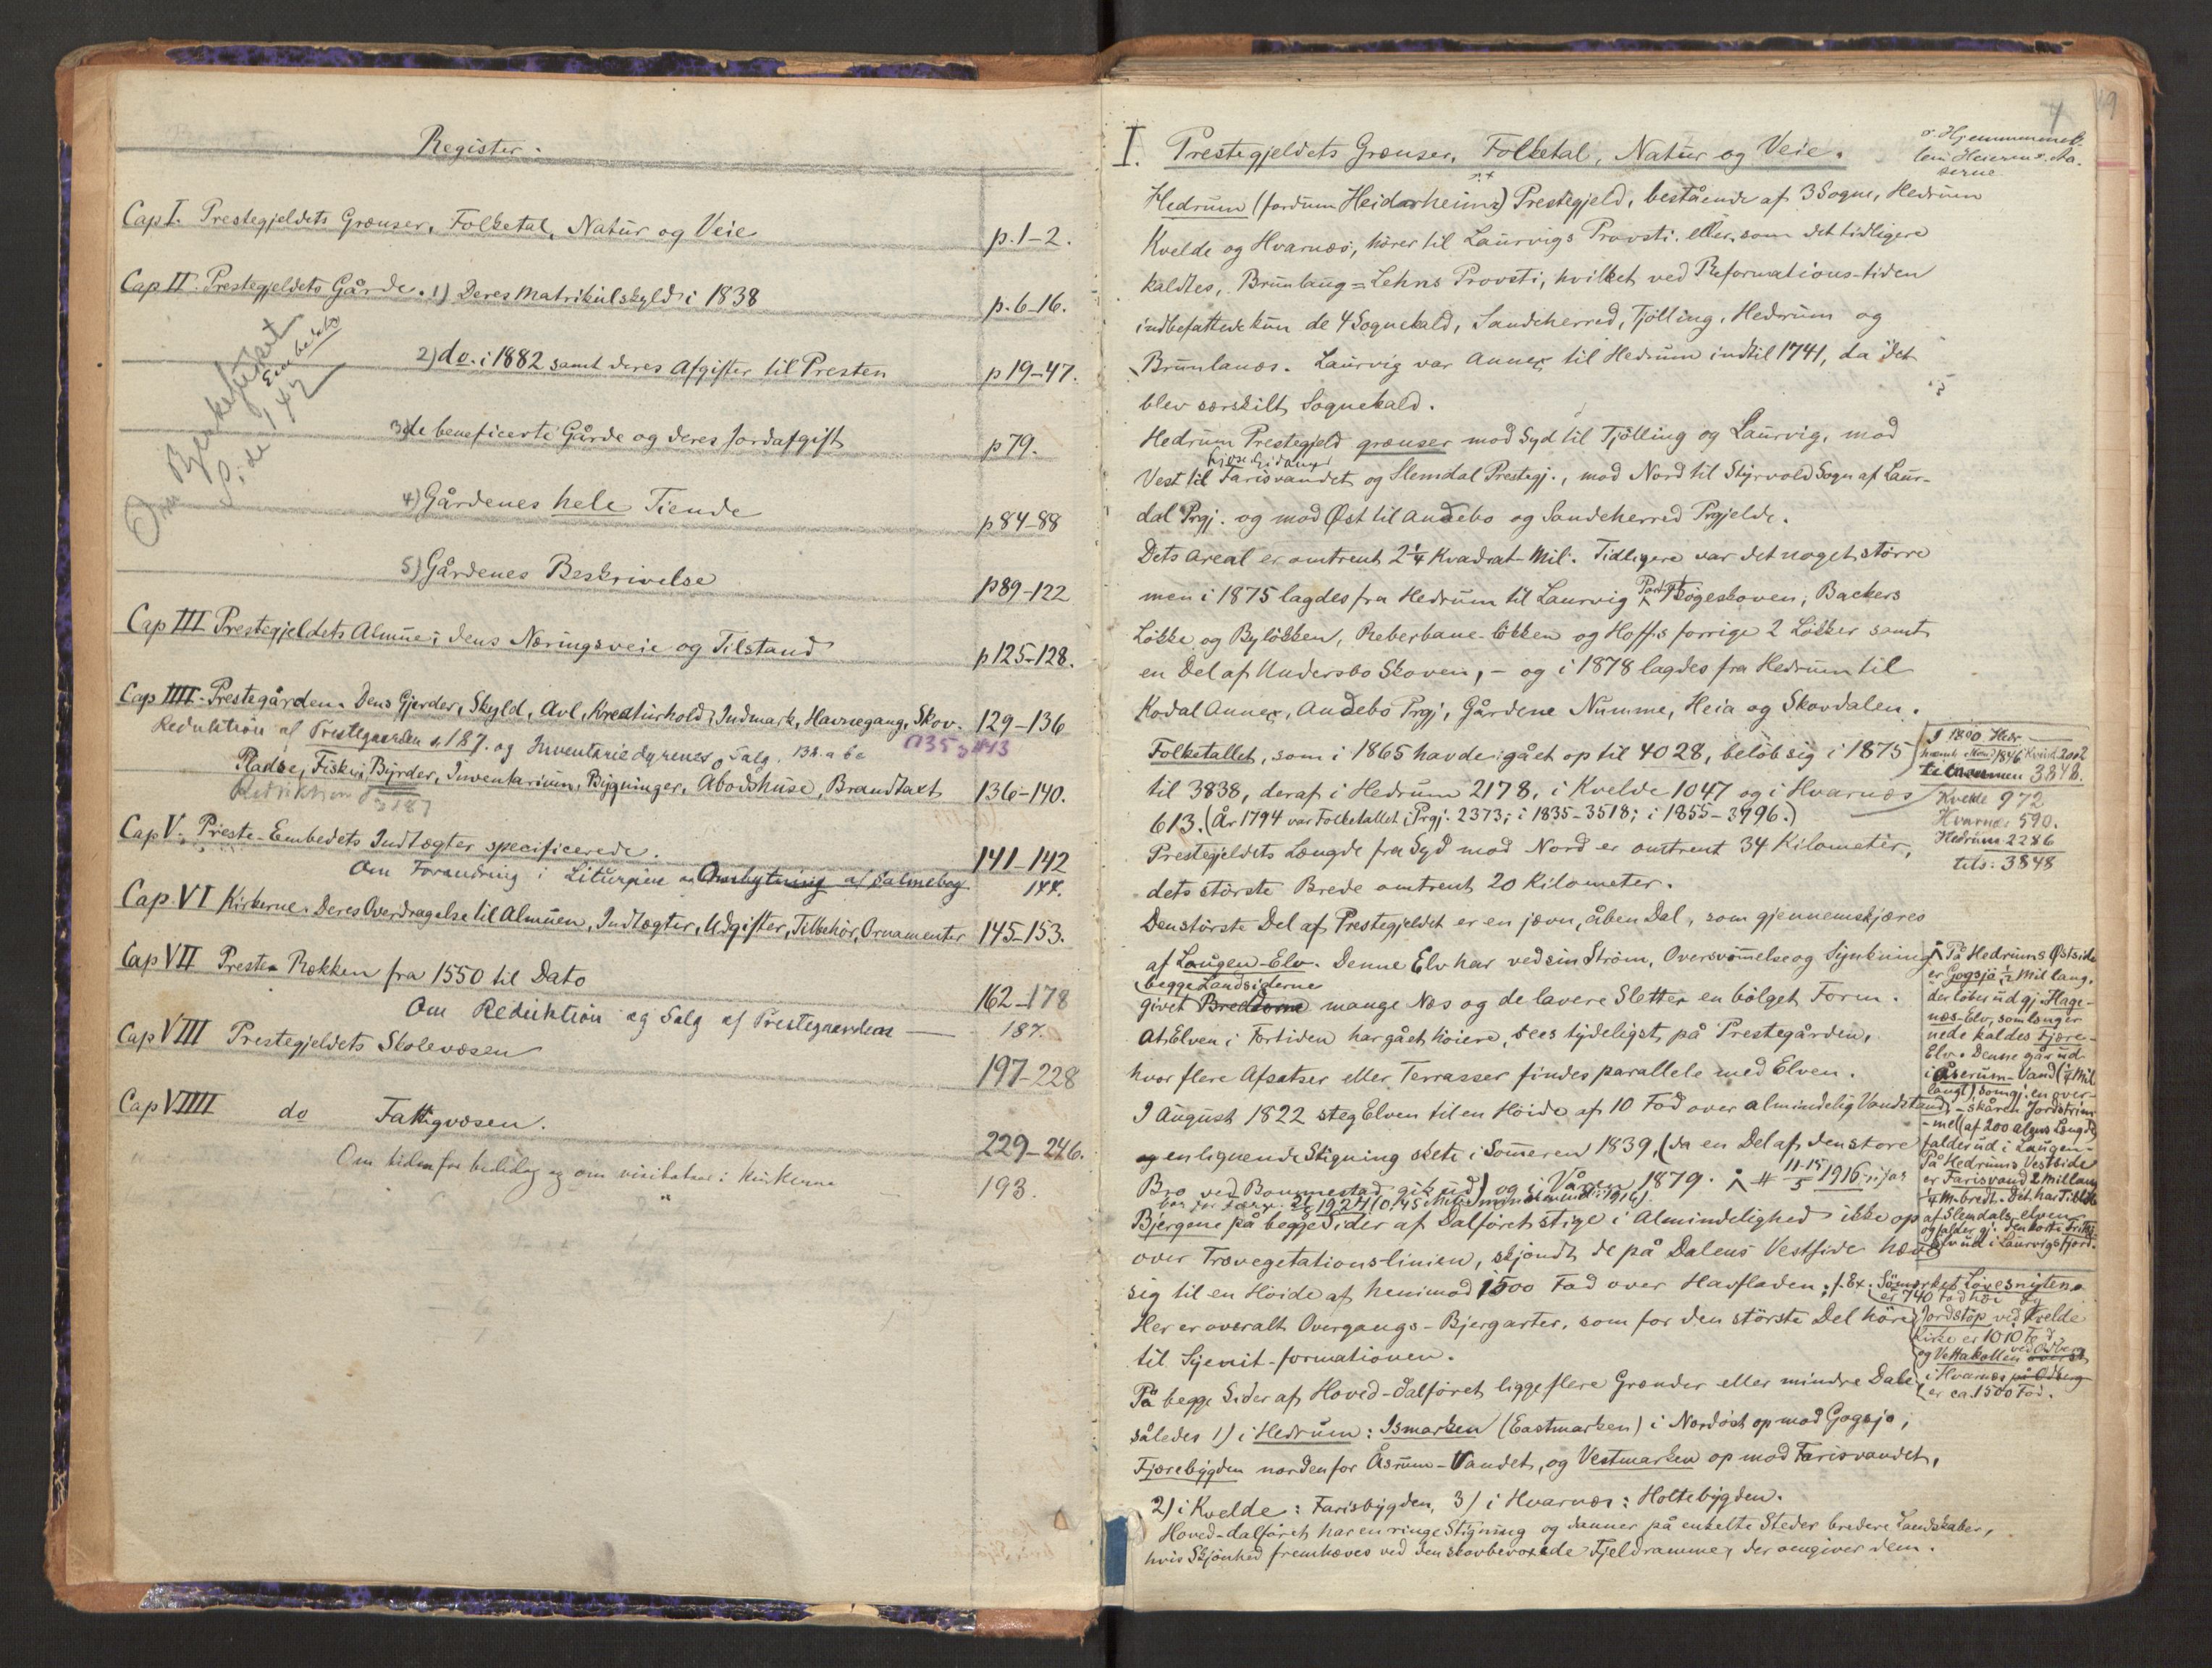 Register.
Cap I. Prestegjeldets Grænser, Folketal, Natur og Veie p. 1-2.
Cap II. Prestegjeldets Gårde. 1) Deres Matrikulskyld i 1838 p. 6-16.
2) do. i 1882 samt deres Afgifter til Presten p 19-47.
3) de beneficerte Gårde og deres Jordafgift p 79.
4) Gårdenes hele Tiende p 84-88
5) Gårdenes Beskrivelse p 89-122
Om
Embedets
Side 142
Cap III Prestegjeldets Almue; dens Næringsveie og Tilstand p 125-128.
Cap IIII. Prestegården. Dens Gjerder, Skyld, Avl, Kreaturhold, Indmark, Havnegang, Skov. 129-136
Reduktion af Prestegaarden s. 187. og Inventariedyrenes Salg. 138. a b c
Pladse, Fiskeri, Byrder, Inventarium, Bygninger, Abodshuse, Brandtaxt 136-140.
Reduktion
s 187
Cap V. Preste-Embedets Indtægter specificerede. 141-142
Om Forandring i Liturgien og Ombytning af Salmebog 144.
Cap. VI Kirkerne. Deres Overdragelse til Almuen, Indtægter, Udgifter, Tilbehör, Ornamenter 145-153.
Cap VII Preste-Rækken fra 1550 til Dato 162-178
Om Reduktion og Salg af Prestegaarden 187.
Cap VIII Prestegjeldets Skolevæsen 197-228
Cap VIIII do Fattigvæsen. 229-246.
Om tiden for helligdag og om visitatser i Kirkerne 193.
19
I. Prestegjeldets Grænser, Folketal, Natur og Veie.
Hedrum (fordum Heidarheimr) Prestegjeld, bestående af 3 Sogne, Hedrum
Kvelde og Hvarnæs, hører til Laurvigs Provsti, eller, som det tidligere
kaldtes, Brunlaug=Lehns Provsti, hvilket ved Reformations-tiden
indbefattede kun de 4 Sognekald, Sandeherred, Tjölling, Hedrum og
Brunlanæs. Laurvig var Annex til Hedrum indtil 1741, da det
blev særskilt Sognekald.
Hedrum Prestegjeld grænser mod Syd til Tjölling og Laurvig, mod
Vest til Farisvandet og Slemdal Prestegj., mod Nord til Styrvold Sogn af Laur-
dal Prgj. og mod Øst til Andebo og Sandeherred Prgjelde.
Dets Areal er omtrent 2¼ Kvadrat-Mil. Tidligere var det noget större
men i 1875 lagdes fra Hedrum til Laurvig Bögeskoven, Backers
Løkke og Byløkken, Reberbane-løkken og Hoffs forrige 2 Løkker samt
en Del af Undersbo Skoven, - og i 1878 lagdes fra Hedrum til
Kodal Annex, Andebo Prgj, Gårdene Numme, Heia og Skovdalen.
Folketallet, som i 1865 havde gået op til 4028, beløb sig i 1875
til 3838, deraf i Hedrum 2178, i Kvelde 1047 og i Hvarnæs
613. (År 1794 var Folketallet i Prgj. 2373; i 1835-3518; i 1855-3996.)
Prestegjeldets Længde fra Syd mod Nord er omtrent 34 Kilometer,
dets störste Brede omtrent 20 Kilometer.
I 1890 Hedr
Mænd 1846 Kvind. 2002
tilsammen 3848.
Kvelde 972
Hvarnæs 590.
Hedrum 2286
tils: 3848
Den störste Del af Prestegjeldet er en jævn, åben Dal, som gjennemskjæres
af Laugen-Elv. Denne Elv har ved sin Ström, Oversvömmelse og Synkning
begge Landsiderne
givet Bredderne mange Næs og de lavere Sletter en bölget Form.
At Elven i Fortiden har gået höiere, sees tydeligst på Prestegården,
hvor flere Afsatser eller Terrasser findes parallele med Elven.
I August 1822 steg Elven til en Höide af 10 Fod over almindelig Vandstand,
og en lignende Stigning skete i Sommeren 1839, (da en Del af den store
Bro ved Bommestad gik ud) og i Våren 1879. 11-15/5 1916
Bjergene på begge Sider af Dalföret stige i Almindelighed ikke op
over Trævegetationslinien, skjöndt de på Dalens Vestside hæve
sig til en Höide af henimod 1500 Fod over Havfladen; f. Ex.
Her er overalt Overgangs-Bjergarter, som for den störste Del höre
til Syenit-formationen.
På begge Sider af Hoved-Dalföret ligge flere Grænder eller mindre Dale,
således 1) i Hedrum: Ismarken (Eastmarken) i Nordöst op mod Gogsjø,
Fjærebygden nordenfor Åsrum-Vandet, og Vestmarken op mod Farisvandet,
2) i Kvelde: Farisbygden, 3) i Hvarnæs: Holtebygden.
Hoved-dalföret har en ringe Stigning og danner på enkelte Steder bredere Landskaber,
hvis Skjönhed fremhæves ved den skovbevoxede Fjeldramme, der omgiver dem.
På Hedrums Østside
er Gogsjö ½ Mil lang,
der løber ud gj. Hage-
næs-Elv, som længer
nede kaldes Fjære-
Elv. Denne går ud
i Åserum-Vand (¼ Mil
langt), som gj. en over-
skåren Jordstrim-
mel (af 200 Alens Længde)
falder ud i Laugen.
På Hedrums Vestside
er Farisvand 2 Mil lang
¼ M. bredt. Det har Tilløb
af Slemdals-elven
og falder gj. den korte Fritsø-
Elv ud i Laurvigsfjord.
er 740 Fod høi og
Jordstöp ved Kvelde
Kirke er 1010 Fod,
og Vettakollen ved Odberg
i Hvarnæs
er ca. 1500 Fod.